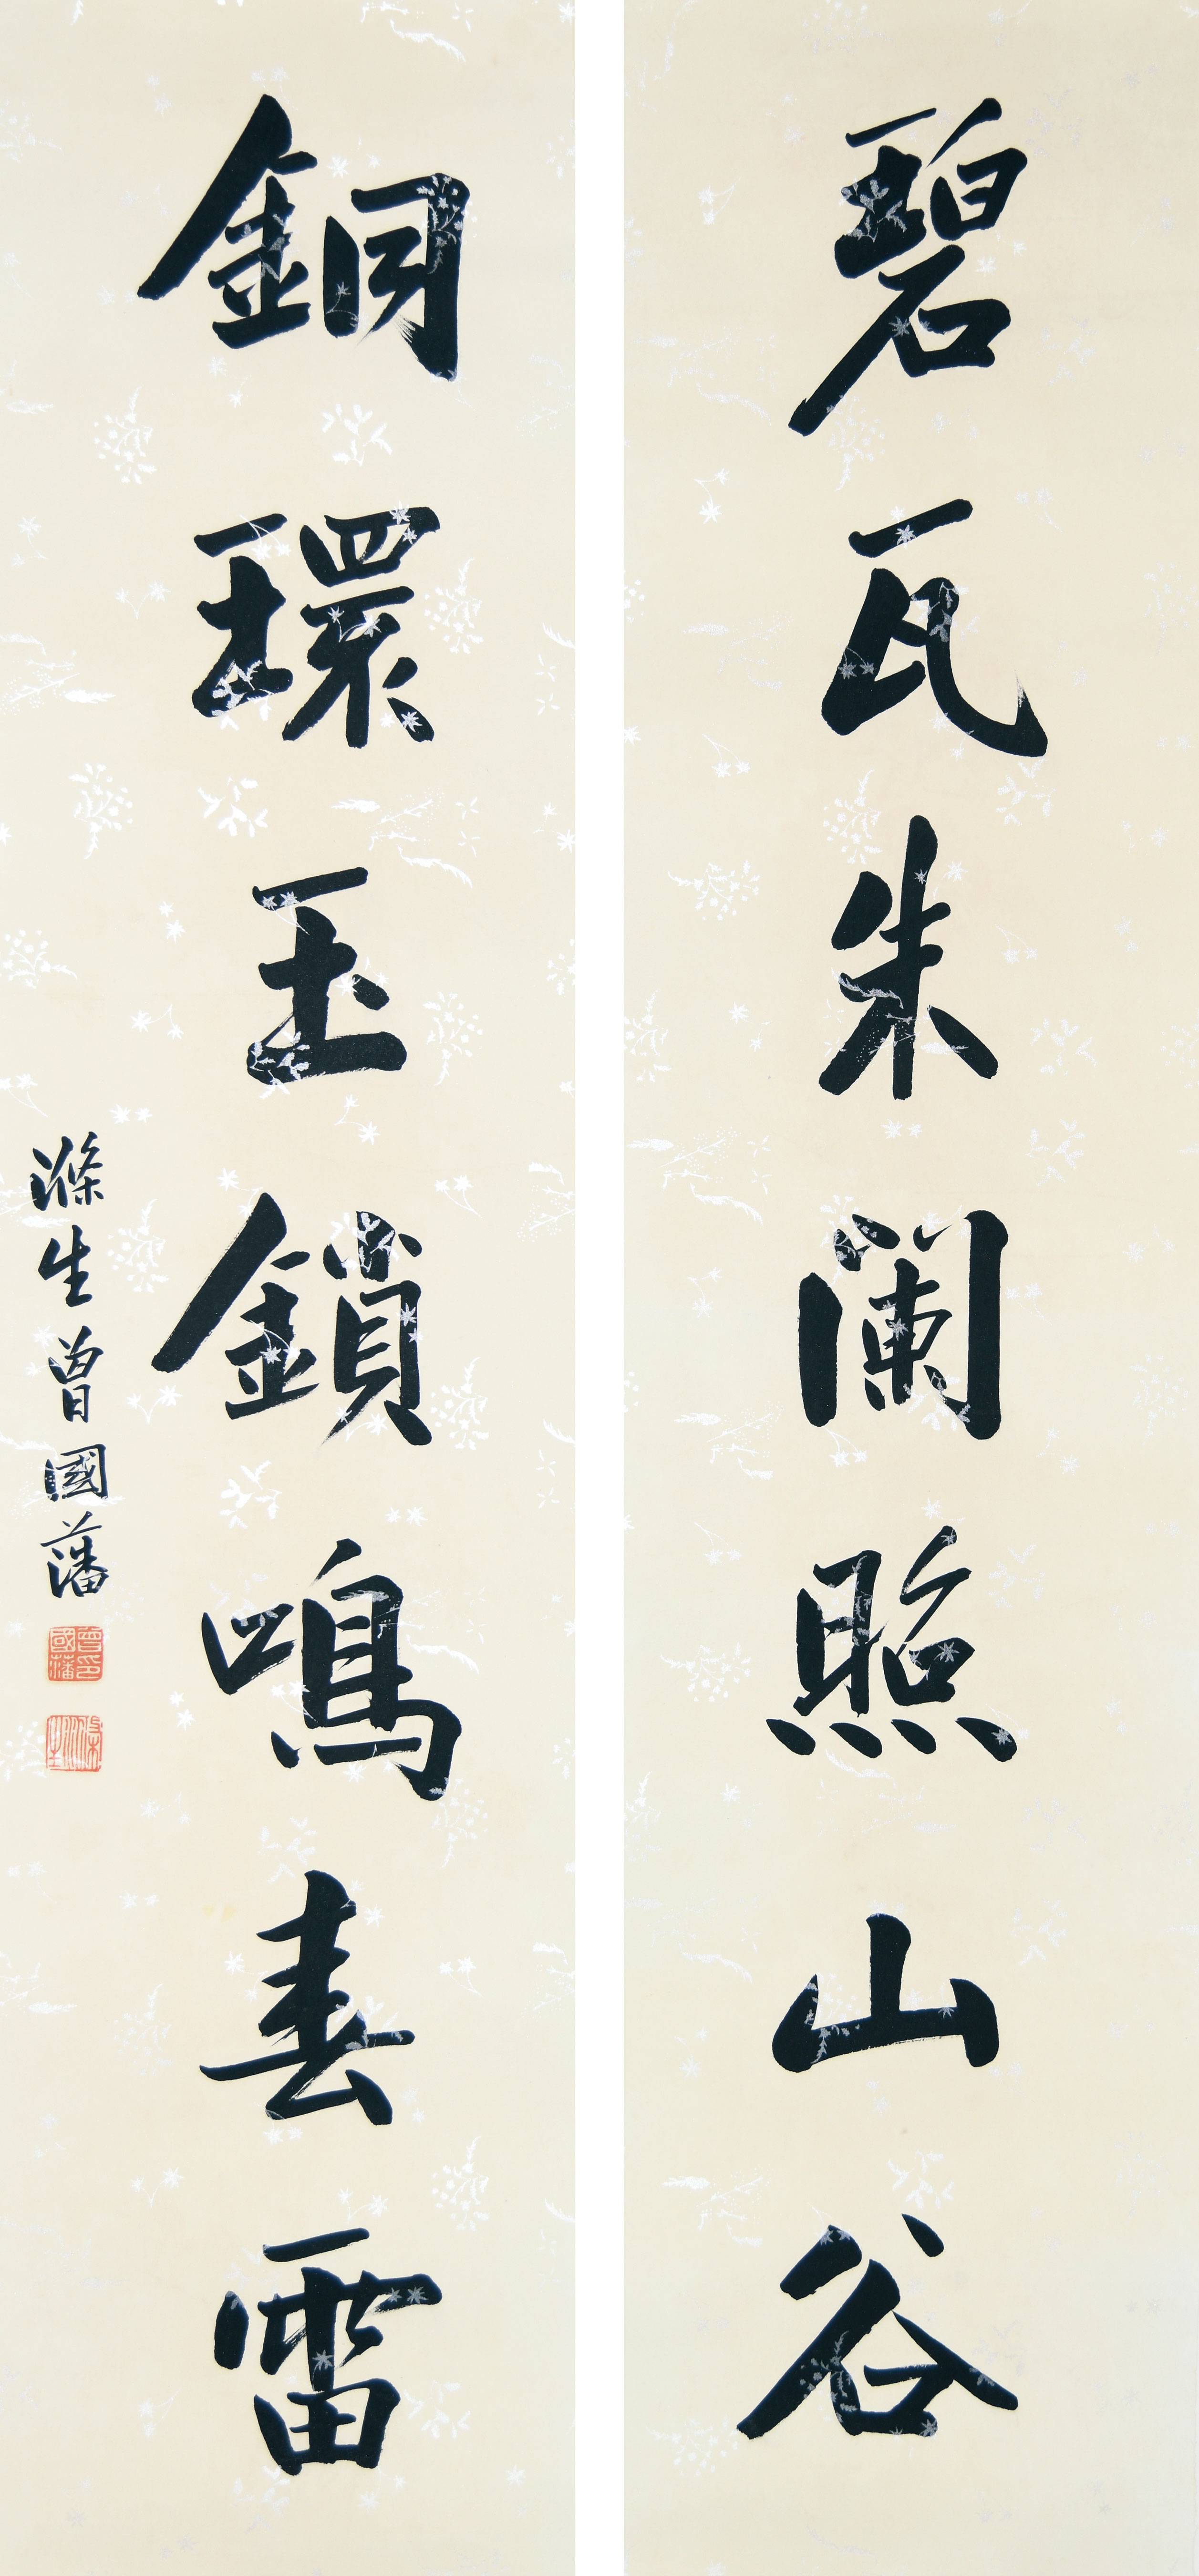 碧瓦朱闌照山谷
銅環玉鎖鳴春雷
滌生曾國藩
曾國藩印
滌生